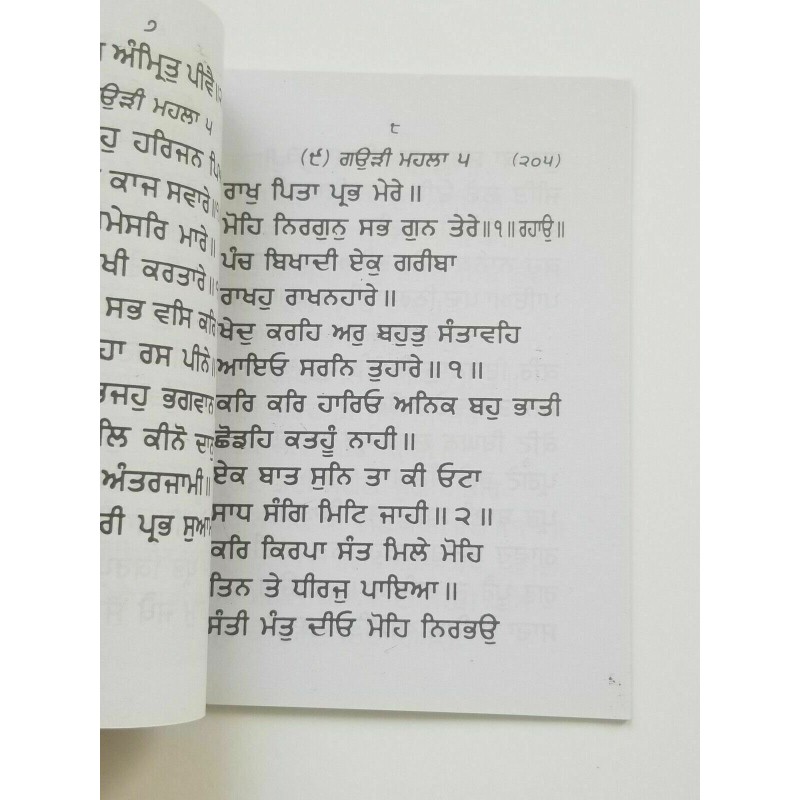 ੭
ਅੰਮ੍ਰਿਤੁ ਪੀਵੈ॥
ਗਉੜੀ ਮਹਲਾ ੫
ਹੁ ਹਰਿਜਨ
ਕਾਜ ਸਵਾਰੇ॥
ਮੇਸਰਿ ਮਾਰੇ॥
ਖੀ ਕਰਤਾਰੇ॥
ਸਭ ਵਸਿ ਕਰਿ
ਹਾ ਰਸ ਪੀਨੇ॥
ਤਜਹੁ ਭਗਵਾਨ
ਲਿ ਕੀਨੋ
ਅੰਤਰਜਾਮੀ॥
ਰੀ ਪ੍ਰਭ ਸੁਆ
੮
(੯) ਗਉੜੀ ਮਹਲਾ ੫ (੨੦੫)
ਰਾਖੁ ਪਿਤਾ ਪ੍ਰਭ ਮੇਰੇ॥
ਮੋਹਿ ਨਿਰਗੁਨੁ ਸਭ ਗੁਨ ਤੇਰੇ॥੧॥ ਰਹਾਉ॥
ਪੰਚ ਬਿਖਾਦੀ ਏਕੁ ਗਰੀਬਾ
ਰਾਖਹੁ ਰਾਖਨਹਾਰੇ॥
ਖੇਦੁ ਕਰਹਿ ਅਰੁ ਬਹੁਤੁ ਸੰਤਾਵਹਿ
ਆਇਓ ਸਰਨਿ ਤੁਹਾਰੇ॥੧॥
ਕਰਿ ਕਰਿ ਹਾਰਿਓ ਅਨਿਕ ਬਹੁ ਭਾਤੀ
ਛੋਡਹਿ ਕਤਹੂੰ ਨਾਹੀ॥
ਏਕ ਬਾਤ ਸੁਨਿ ਤਾ ਕੀ ਓਟਾ
ਸਾਧ ਸੰਗਿ ਮਿਟਿ ਜਾਹੀ॥੨॥
ਕਰਿ ਕਿਰਪਾ ਸੰਤ ਮਿਲੇ ਮੋਹਿ
ਤਿਨ ਤੇ ਧੀਰਜੁ ਪਾਇਆ॥
ਸੰਤੀ ਮੰਤੁ ਦੀਓ ਮੋਹਿ ਨਿਰਭਉ